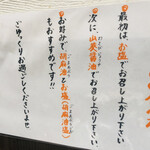 最初は、お塩でお召し上がり下さい
次に、山葵醤油でお召し上がり下さい
お好みで、胡麻油とお塩(胡麻油塩)
もおすすめです!!
ごゆっくりお過ごしくださいませ